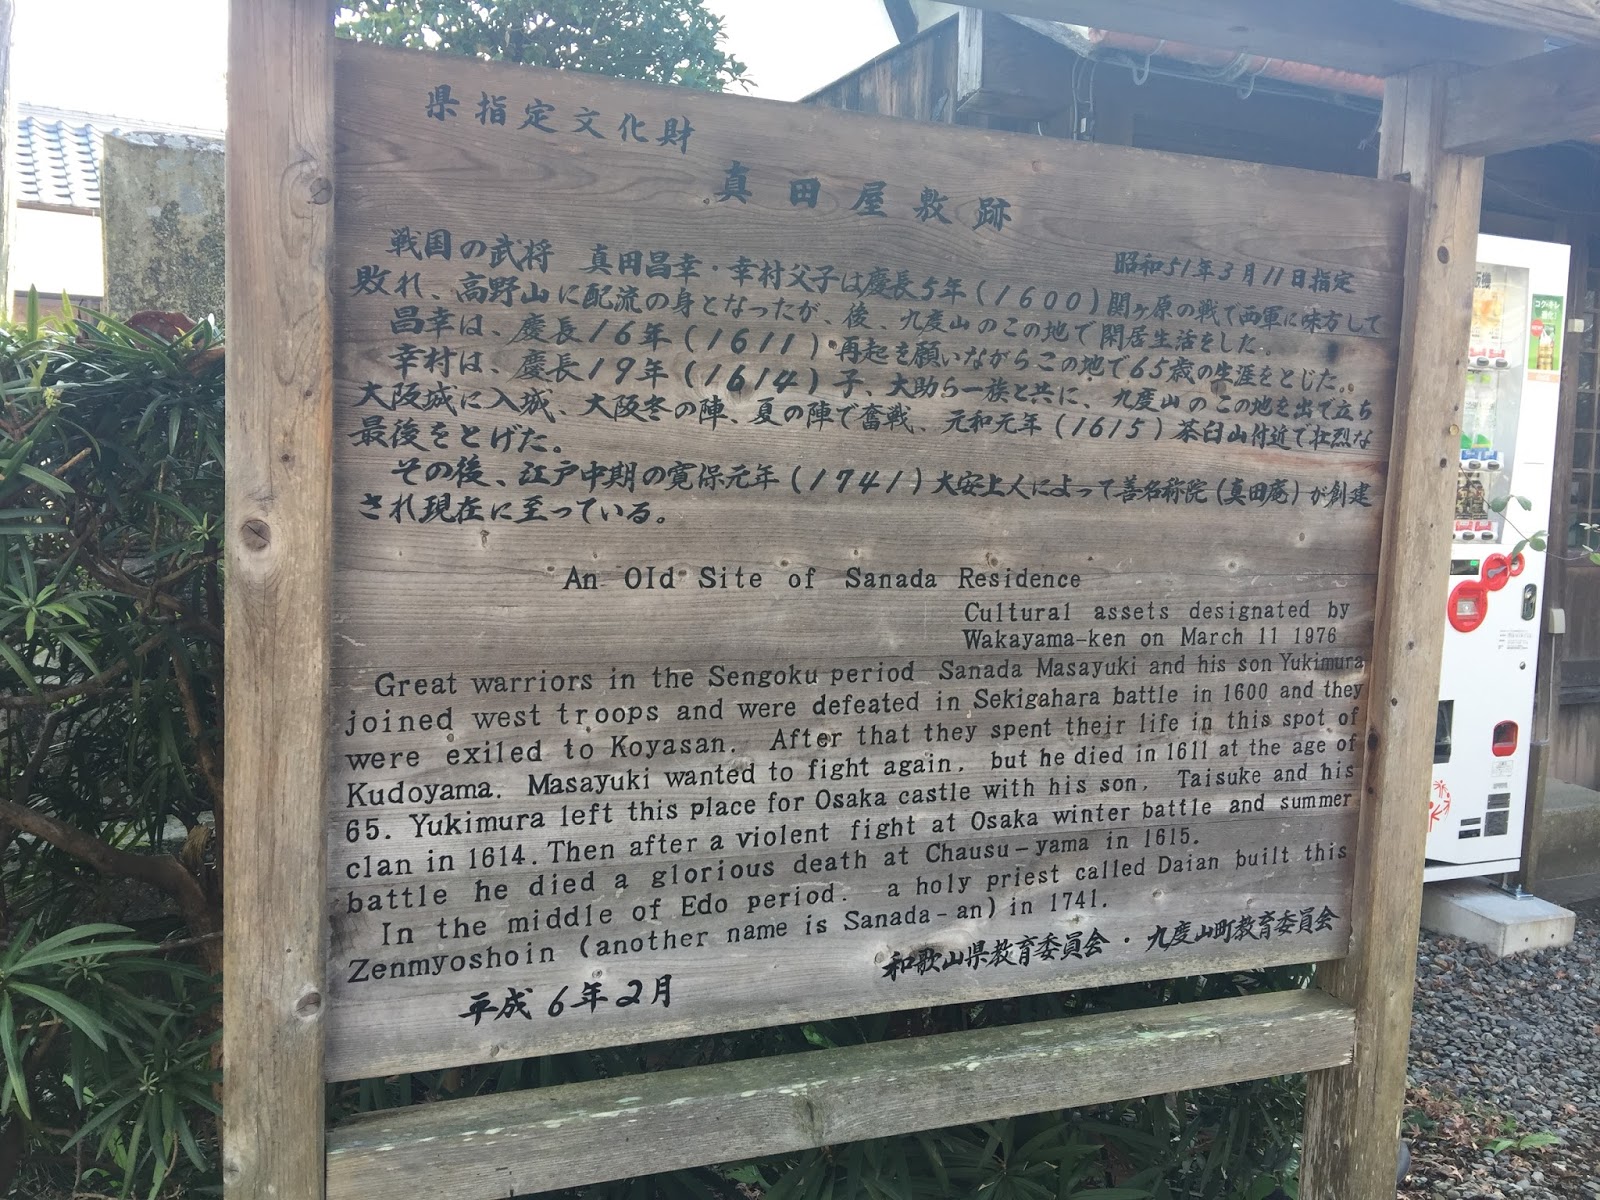 県指定文化財
真田屋敷跡
昭和51年3月11日指定
戦国の武将　真田昌幸・幸村父子は慶長5年(1600)関ヶ原の戦で西軍に味方して
敗れ、高野山に配流の身となったが、後、九度山のこの地で閑居生活をした。
昌幸は、慶長16年(1611)再起を願いながらこの地で65歳の生涯をとじた。
幸村は、慶長19年(1614)子、大助ら一族と共に、九度山のこの地を出で立ち
大阪城に入城、大阪冬の陣、夏の陣で奮戦、元和元年(1615)茶臼山付近で壮烈な
最後をとげた。
その後、江戸中期の寛保元年(1741)大安上人によって善名称院(真田庵)が創建
され現在に至っている。
An Old Site of Sanada Residence
Cultural assets designated by
Wakayama-ken on March 11 1976
Great warriors in the Sengoku period Sanada Masayuki and his son Yukimura
joined west troops and were defeated in Sekigahara battle in 1600 and they
were exiled to Koyasan. After that they spent their life in this spot of
Kudoyama. Masayuki wanted to fight again, but he died in 1611 at the age of
65. Yukimura left this place for Osaka castle with his son, Taisuke and his
clan in 1614. Then after a violent fight at Osaka winter battle and summer
battle he died a glorious death at Chausu-yama in 1615.
In the middle of Edo period. a holy priest called Daian built this
Zenmyoshoin (another name is Sanada-an) in 1741.
平成6年2月
和歌山県教育委員会・九度山町教育委員会